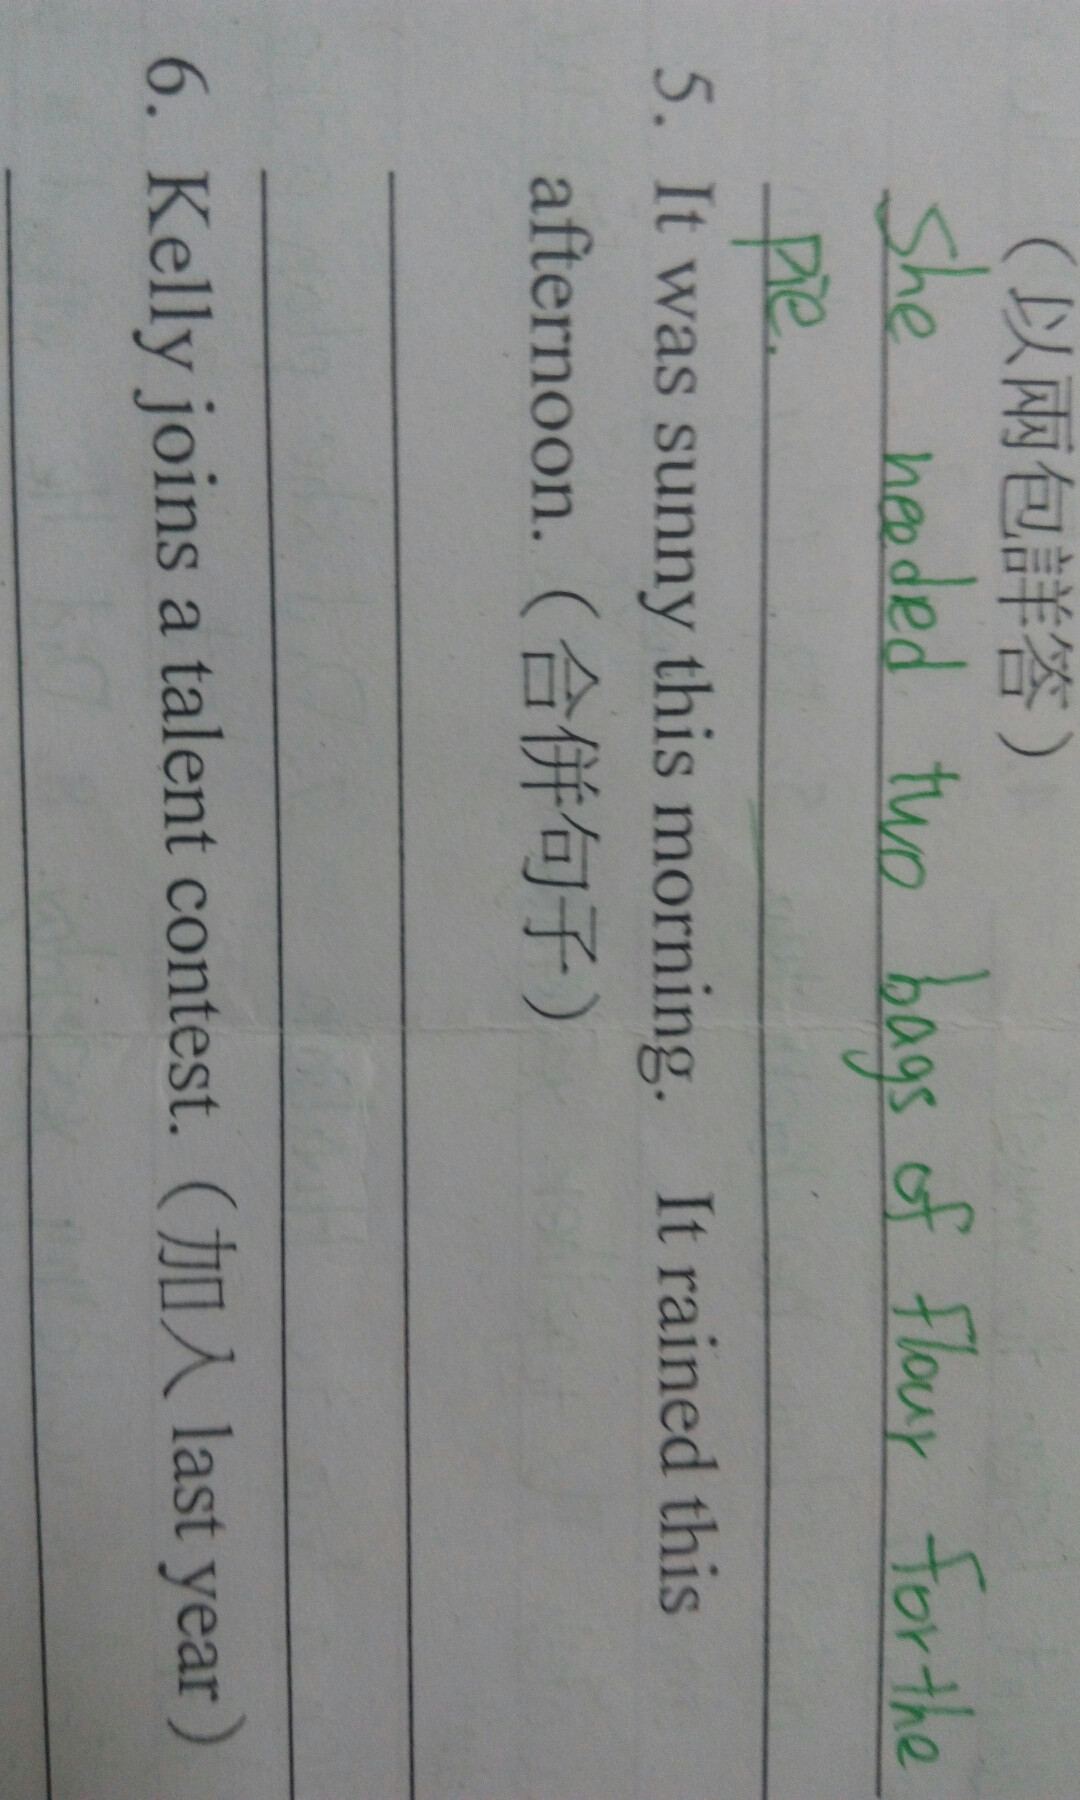 （以兩包詳答）
She needed two bags of flour for the
pie.
5. It was sunny this morning. It rained this
afternoon.（合併句子）
6. Kelly joins a talent contest.（加入 last year）